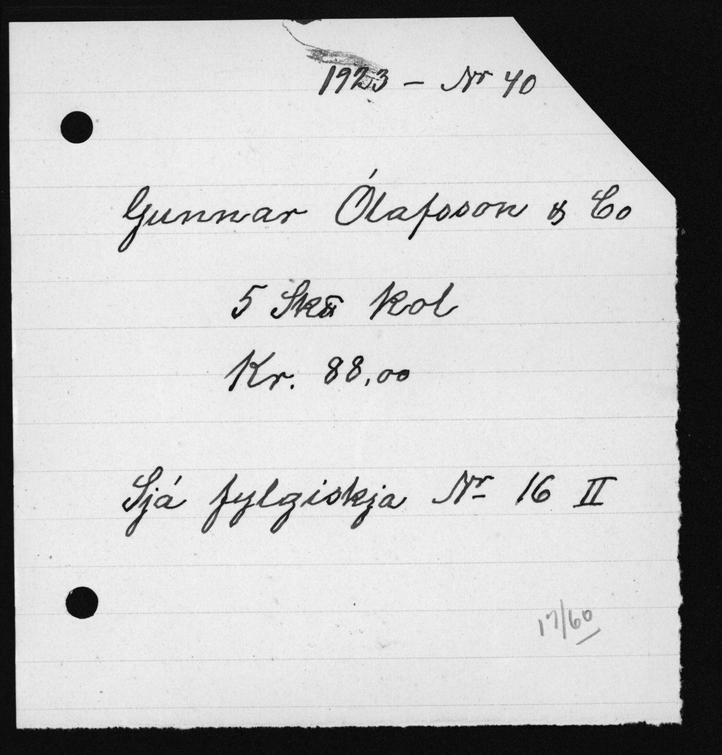 1923 - Nr 40
Gunnar Ólafsson & Co
5 Skū kol
Kr. 88,00
Sjá fylgiskja Nr 16 II
17/60